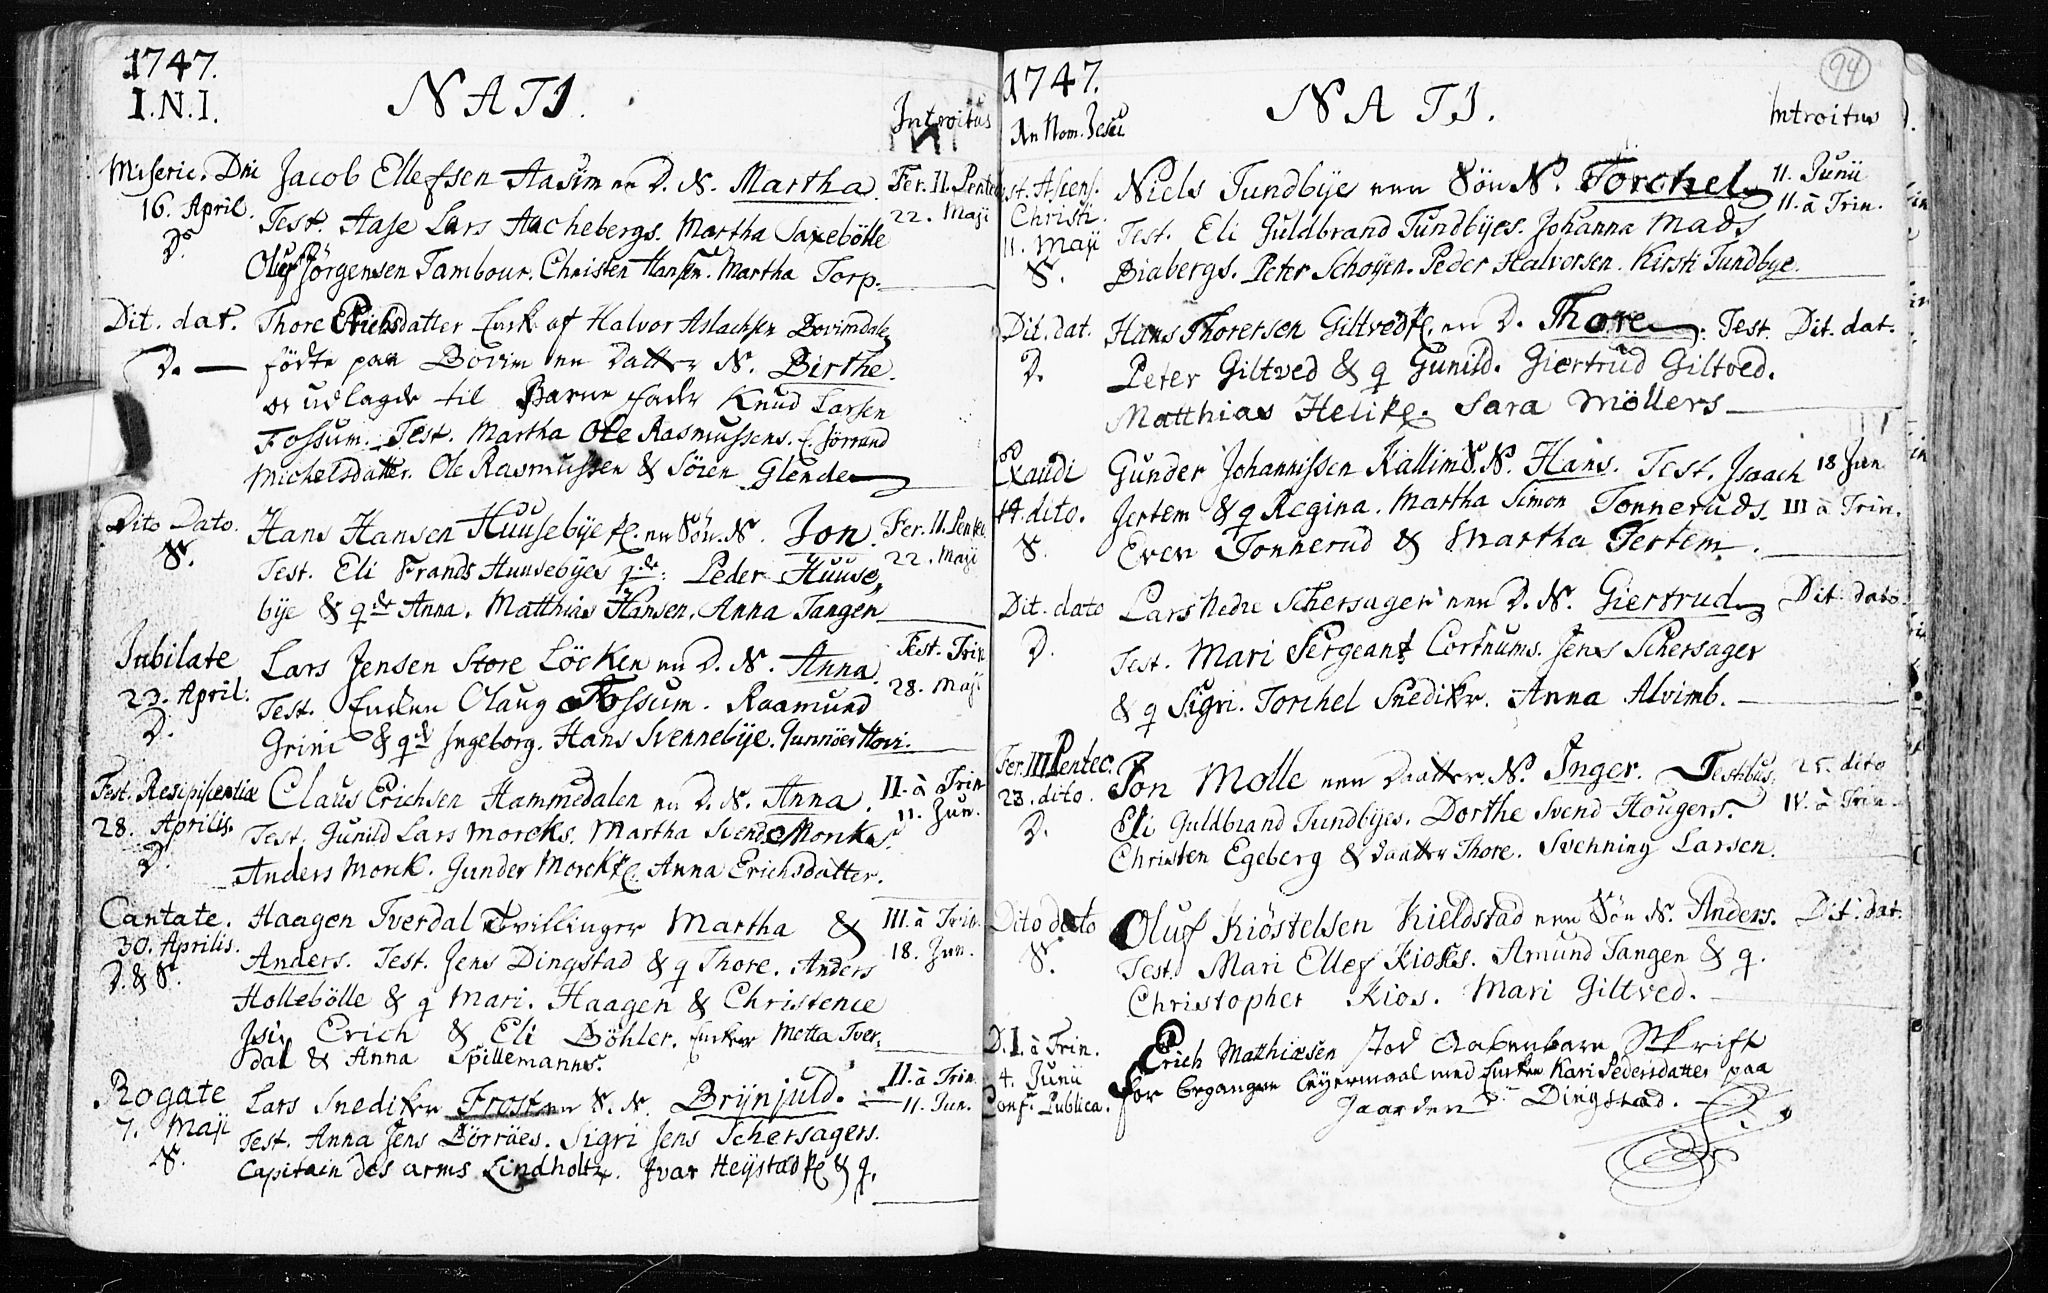 1747.
I. N. I.
NATI.
Introitus
Miseric. Dni Jacob Ellefsen Aasim en D. N. Martha. Fer. II. Pentec.
16. April. Test. Aase Lars Aachebergs. Martha Saxebölle 22. Maji
D. Oluf Jörgensen Tambour. Christen Hansen. Martha Torp.
Dit. dat. Thore Erichsdatter Enke af Halvor Aslachsen Bovimdale
D. födte paa Bovim en Datter N. Birthe.
er udlagde til Barne fader Knud Larsen
Fossum. Test. Martha Ole Rasmussens. Jörrand
Michelsdatter. Ole Rasmussen & Sören Glende
Dito Dato. Hans Hansen Huusebye en Sön. N. Jon. Fer. II. Pentec.
S. Test. Eli Frands Huusebyes Peder Huuse- 22. Maji
bye & q Anna. Matthias Hansen. Anna Tangen
Jubilate Lars Jensen Store Löcken en D. N. Anna. Fest. Trin
23. April. Test. Enken Olaug Fossum. Raamund 28. Maji
D. Grini & q Ingeborg. Hans Svennebye. Gunnöer Hovi.
Fest. Resipiscentiæ Claus Erichsen Hammedalen en D. N. Anna. II. à Trin
28. Aprilis. Test. Gunild Lars Morcks. Martha Svend Monks. 11. Jun.
D. Anders Monk. Gunder Morck Anna Erichsdatter.
Cantate. Haagen Tverdal Tvillinger Martha & III. à Trin.
30. Aprilis. Anders. Test. Jens Dingstad & q Thore. Anders 18. Jun.
D. & S. Hollebölle & q Mari. Haagen & Christence
Isi, Erich & Eli Böhler. Enken Metta Tver-
dal & Anna Spillemanns.
Rogate Lars Snediker Frost en S. N. Brynjuld. II. à Trin
7. Maji Test. Anna Jens Börräes. Sigri Jens Schersagers. 11. Jun.
S. Capitain des arms Lindholtz. Ivar Heystad & q.
1747.
NATI.
94
In Nom. Jesu
Introitus
st. Ascens. Niels Tundbye een Sön N. Torchel 11. Junii
Christi. Test. Eli Guldbrand Tundbyes. Johanna Mads 11. à Trin.
11. Maji Biabergs. Peter Schoyen. Peder Halvorsen. Kirsti Tundbye.
S.
Dit. dat. Hans Thorersen Giltved en D. Thore. Test. Dit. dat.
D. Peter Giltved & q Gunild. Giertrud Giltved.
Matthias Helike. Sara Möllers
Exaudi Gunder Johannissen Kallim S. N. Hans. Test. Isaach 18 Jun
14. dito. Jertem & q Regina. Martha Simon Tonneruds III à Trin.
S. Even Tonnerud & Martha Tertem.
Dit. dato Lars Nedre Schersager een D. N. Giertrud Dit. dato
D. Test. Mari Sergeant Cortnums. Jens Schersager
& q Sigri. Torchel Snediker. Anna Alvimb.
Fer. III Pentec. Jon Molle een Daatter N. Inger. Testibus. 25. dito
23. dito. Eli Guldbrand Tundbyes. Dorthe Svend Hougers. IV. à Trin
D. Christen Egeberg & Daatter Thore. Svenning Larsen.
Dito dato Oluf Kiöstelsen Kieldstad een Sön N. Anders. Dit. dat.
S. Test. Mari Ellef Kioses. Amund Tangen & q.
Christopher Kios. Mari Giltved.
D. I. à Trin. Erich Mathiæsen stod Aabenbare Skrift
4. Junii for begangne leyermaal med Enken Kari Pedersdatter paa
Conf. Publica. Gaarden Dingstad.